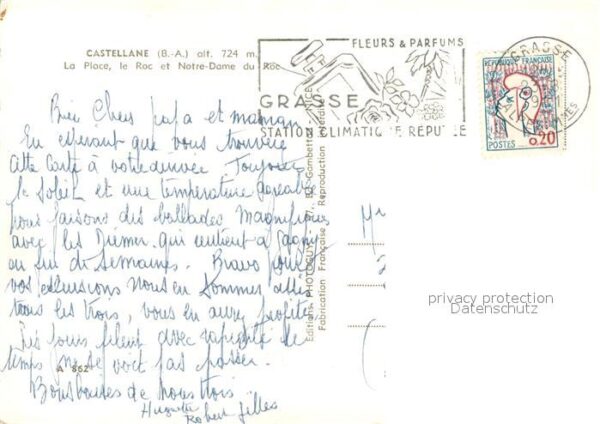 CASTELLANE (B.-A.) alt. 724 m.
La Place, le Roc et Notre-Dame du Roc
FLEURS & PARFUMS
GRASSE
STATION CLIMATIQUE REPUTEE
GRASSE
RÉPUBLIQUE FRANÇAISE
POSTES 0,20
Bien Chers papa et maman
En espérant que vous trouverez
cette carte à votre arrivée. Toujours
le soleil et une température agréable
nous faisons des ballades magnifiques
avec les
en fin de semaines. Bravo pour
vos excursions nous en sommes
tous les trois, vous en aurez profité
Les jours filent avec rapidité le
temps ne se voit pas passer.
Bons baisers de nous trois
Huguette
Robert Gilles
A 862
Editions PHOTOGUY - 7, Gambetta
Fabrication Française - Reproduction
privacy protection
Datenschutz